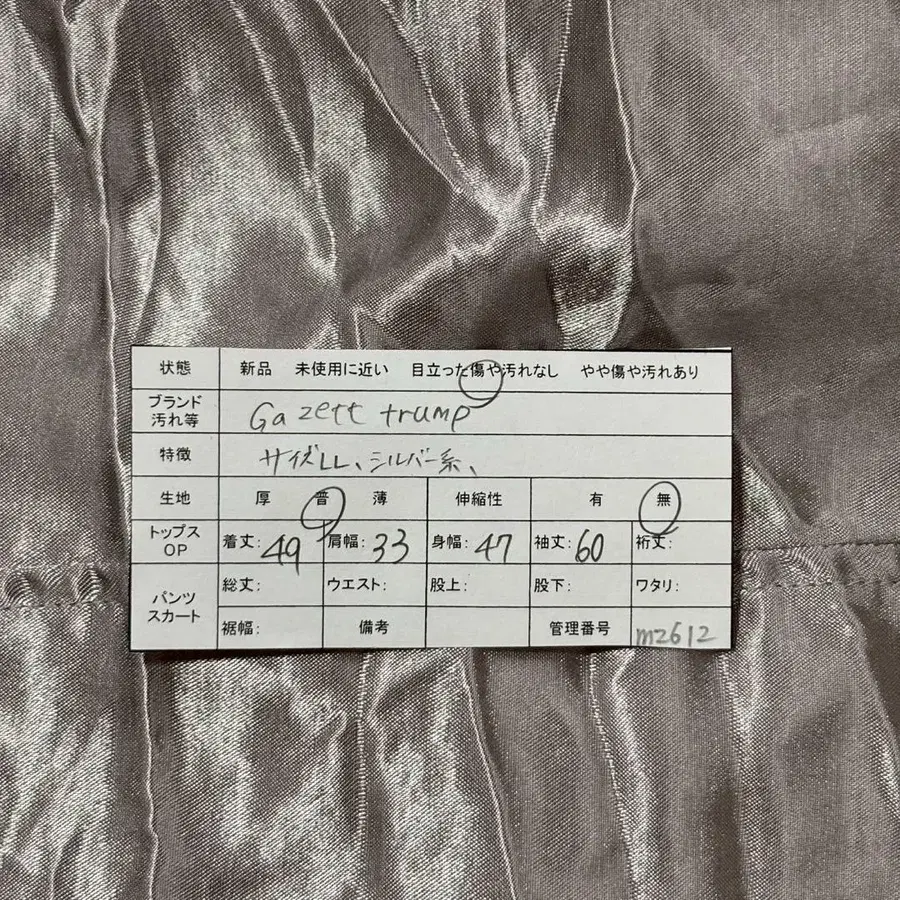 状態 新品 未使用に近い 目立った傷や汚れなし やや傷や汚れあり
ブランド
汚れ等 Gazett trump
特徴 サイズLL、シルバー系、
生地 厚 普 薄 伸縮性 有 無
トップス
OP 着丈:49 肩幅:33 身幅:47 袖丈:60 裄丈:
パンツ
スカート 総丈: ウエスト: 股上: 股下: ワタリ:
裾幅: 備考 管理番号 mz612